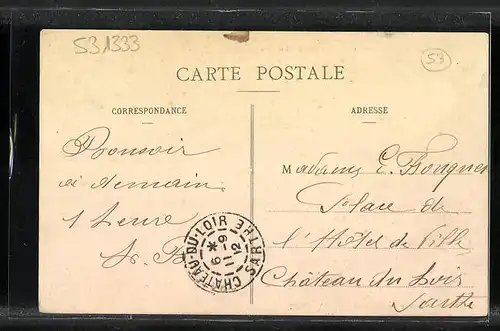 531333
53
CARTE POSTALE
CORRESPONDANCE
ADRESSE
Bonsoir
à demain
1 heure
Madame E.
Place de
l'Hôtel de Ville
Château du Loir
Sarthe
CHÂTEAU-DU-LOIR SARTHE
6 * 9
11
12